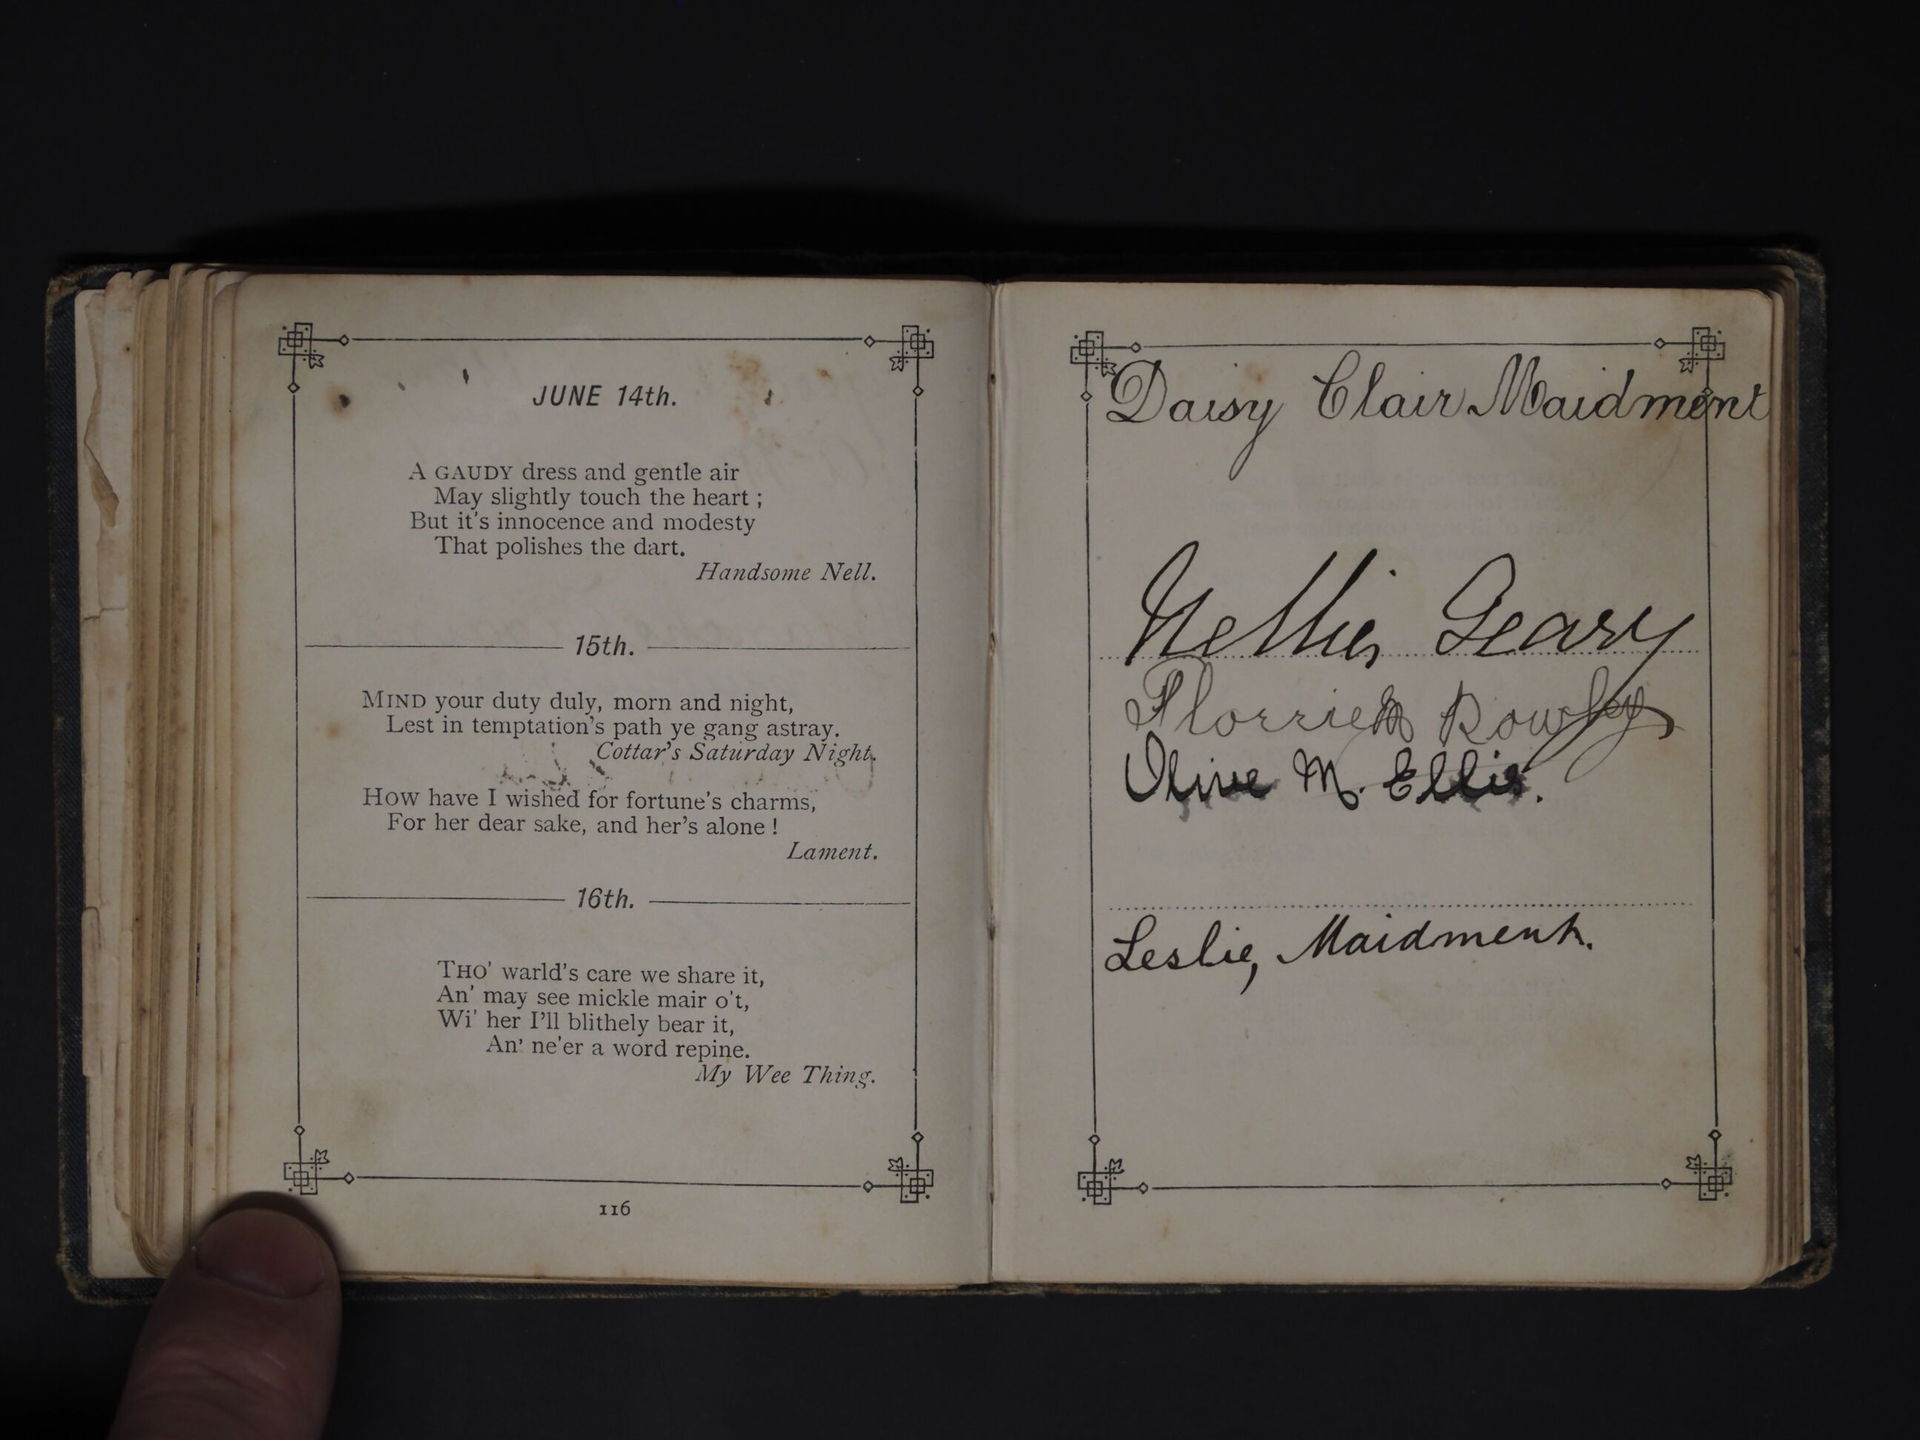 JUNE 14th.
A GAUDY dress and gentle air
May slightly touch the heart ;
But it's innocence and modesty
That polishes the dart.
Handsome Nell.
15th.
MIND your duty duly, morn and night,
Lest in temptation's path ye gang astray.
Cottar's Saturday Night.
How have I wished for fortune's charms,
For her dear sake, and her's alone !
Lament.
16th.
THO' warld's care we share it,
An' may see mickle mair o't,
Wi' her I'll blithely bear it,
An' ne'er a word repine.
My Wee Thing.
116
Daisy Clair Maidment
Nellie Geary
Florrie
Olive M. Ellis.
Leslie, Maidment.